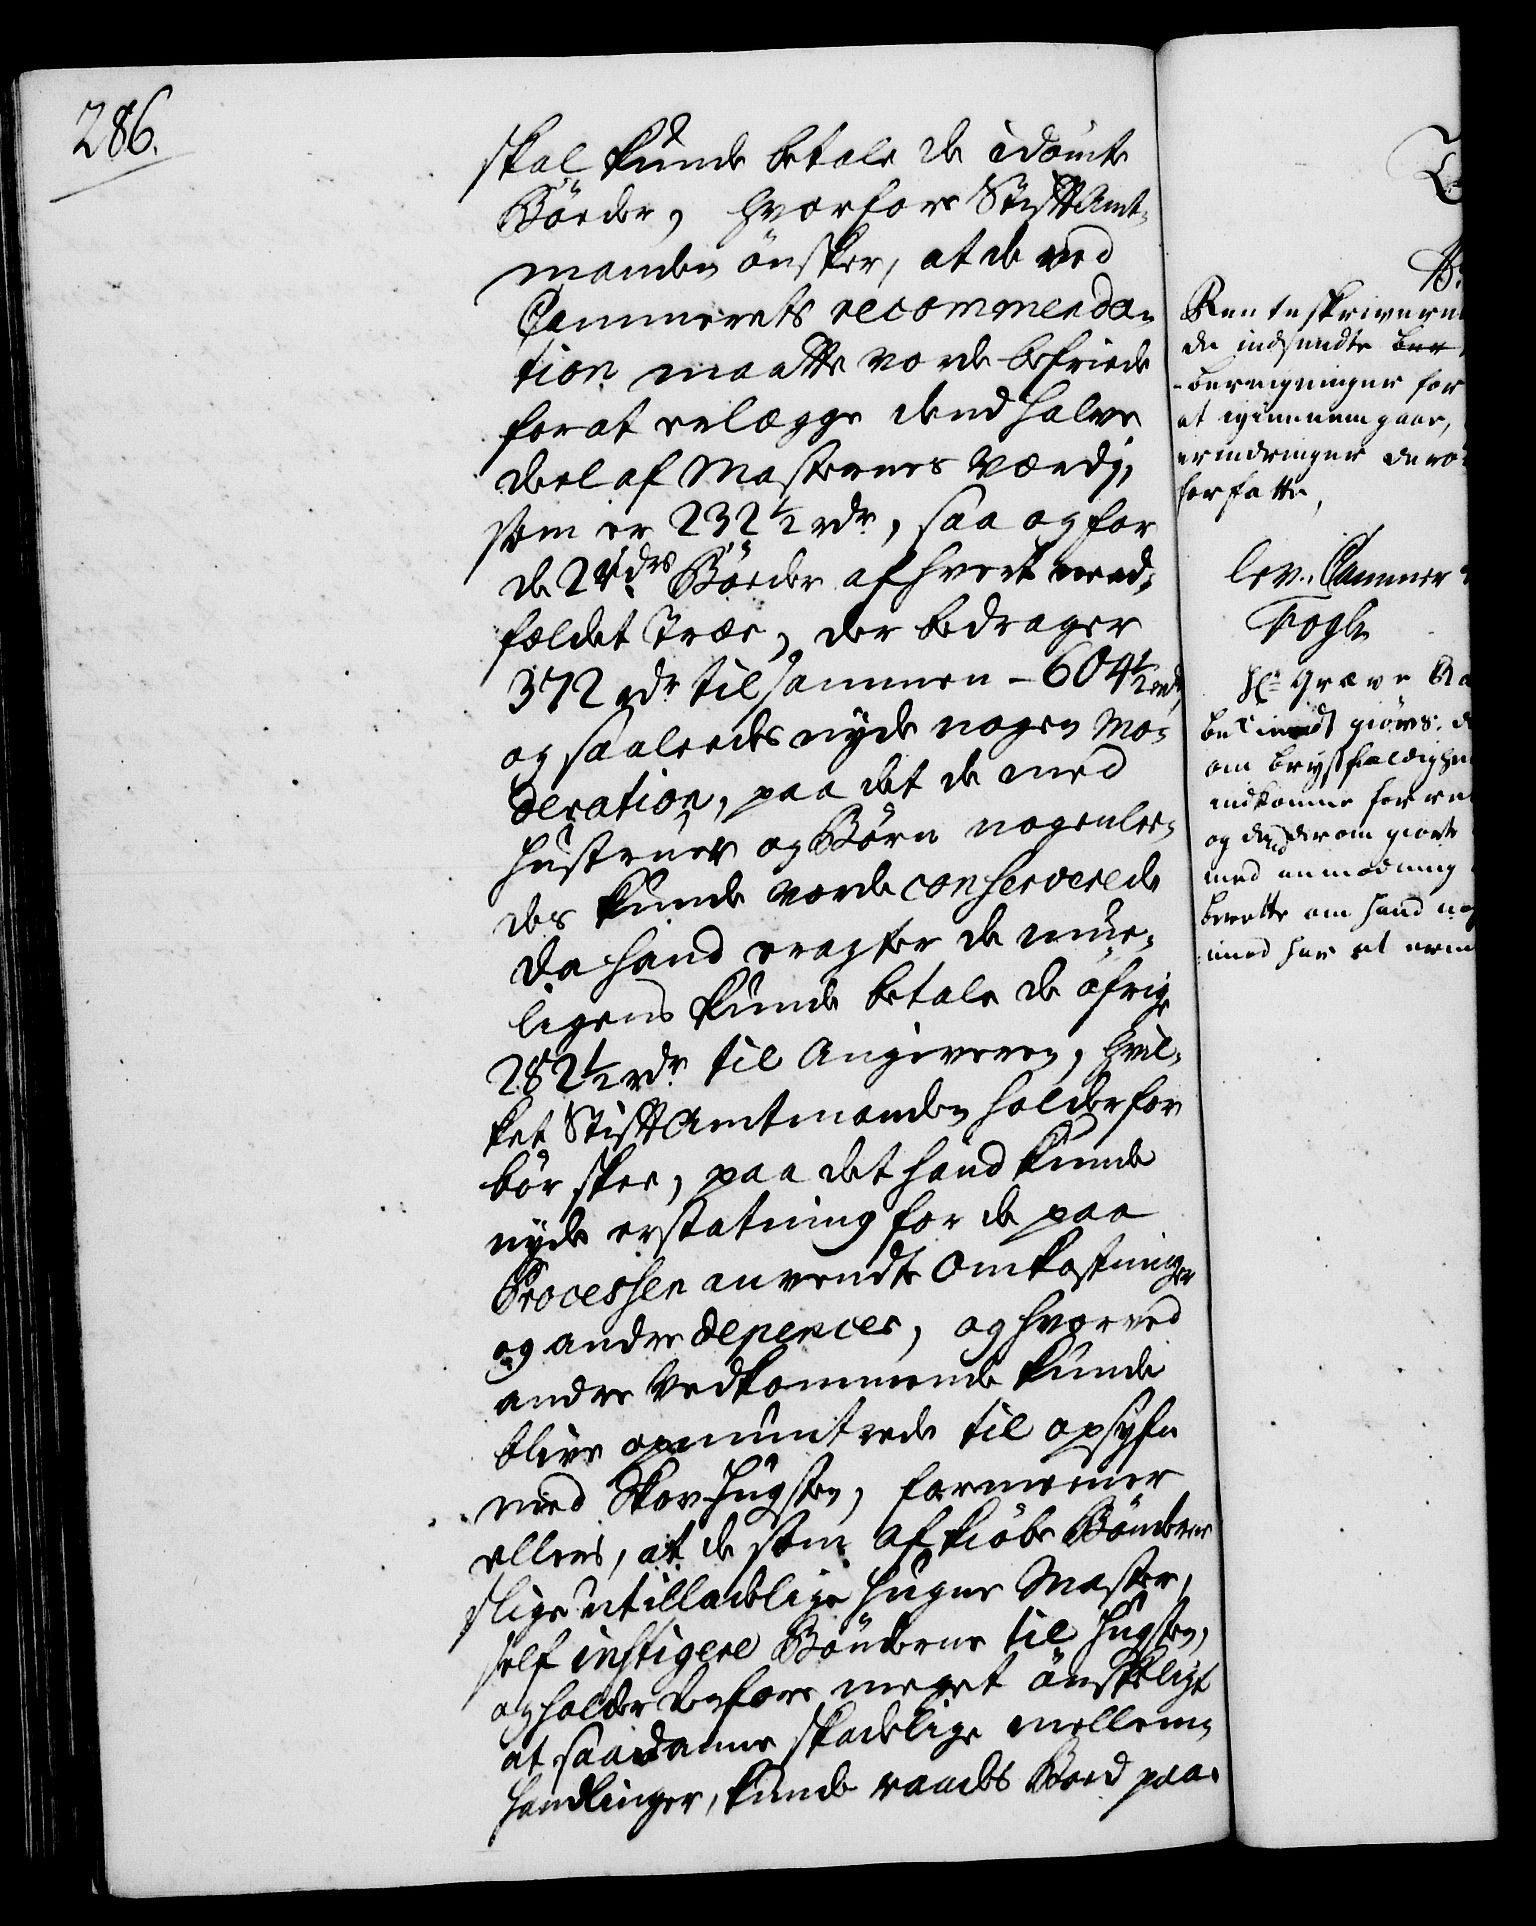 286.
skal kunde betale de idömte
Böeder, hvorfore StiftAmt-
manden önsker, at de ved
Cammerets recommenda-
tion maatte vorde befriede
for at erlægge dend halve
deel af Masternes Værdj,
som er 232½ rdr, saa og for
de 2 rdrs Böeder af hvert need-
fældet Træe, der bedrager
372 rdr tilsammen - 604½ rdr,
og saaleedes nyde nogen Mo-
deration, paa det de med
Hustruer og Börn nogenlee-
des kunde vorde conserverede
da hand eragter de mue-
ligens kunde betale de öfrige
282½ rdr til Angiveren, hvil-
ket StiftAmtmanden holder for
bör skee, paa det hand kunde
nyde erstatning for de paa
Processen anvendte Omkostninger
og andre depencer, og hvorved
andre Vedkommende kunde
blive opmuntrede til opsyfn
med Skov Hugsten, formeener
ellers, at de som afkiöbe Bönderne
slige utilladelige hugne Master,
self instigere Bönderne til Hugsten,
og holder derfore meget önskeligt
at saadanne skadelige mellem-
handlinger, kunde raades Boed paa.
Renteskriveren
de indsendte
beregninger for
at igiennemgaae,
erindringer
forfatte,
Cammer
Fogh
Hr Greve
bekiendt giöres
om brystfældighed
indkomme for
og dend derom giorte
med anmodning
berette om hand
imod har at